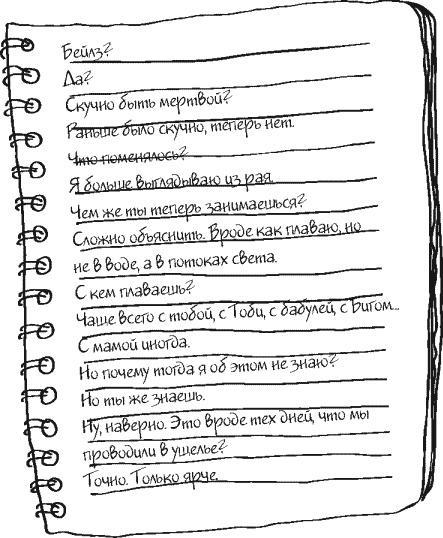 Бейлз?
Да?
Скучно быть мертвой?
Раньше было скучно, теперь нет.
Что поменялось?
Я больше выглядываю из рая.
Чем же ты теперь занимаешься?
Сложно объяснить. Вроде как плаваю, но
не в воде, а в потоках света.
С кем плаваешь?
Чаще всего с тобой, с Тоби, с бабулей, с Бигом...
С мамой иногда.
Но почему тогда я об этом не знаю?
Но ты же знаешь.
Ну, наверно. Это вроде тех дней, что мы
проводили в ущелье?
Точно. Только ярче.